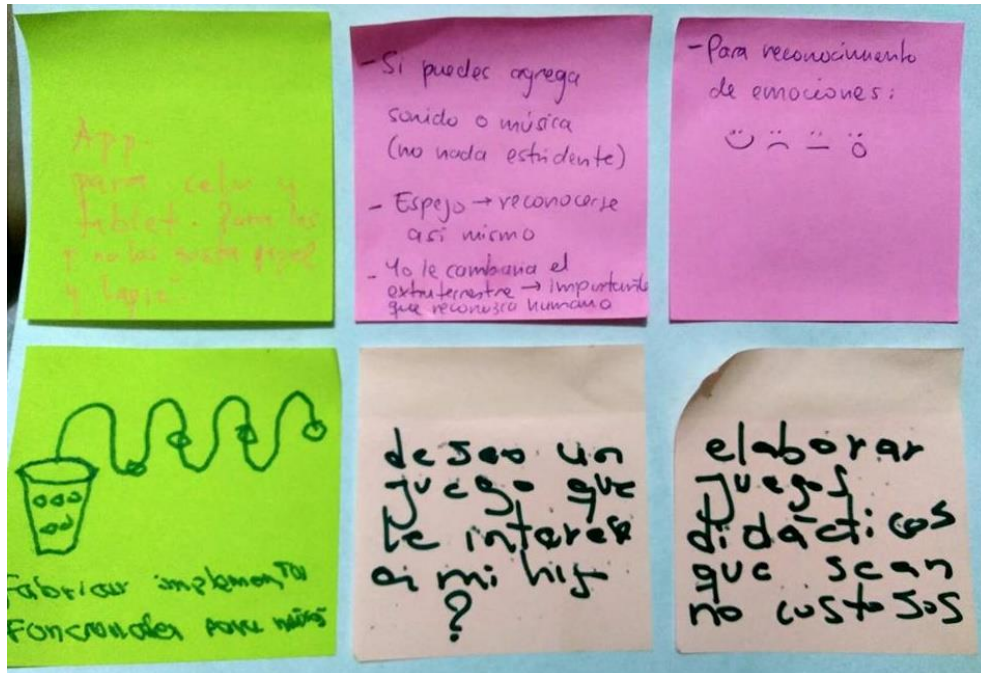 App
para celu y
tablet. Para los
q no les gusta papel
y lapiz"
- Si puedes agrega
sonido o música
(no nada estridente)
- Espejo → reconocerse
asi mismo
- Yo le cambiaria el
extraterrestre → importante
que reconozca humano
- Para reconocimiento
de emociones:
Fabricar implementos
Funcionales para niños
deseo un
juego que
le interese
a mi hij
?
elaborar
juegos
didácticos
que sean
no costosos